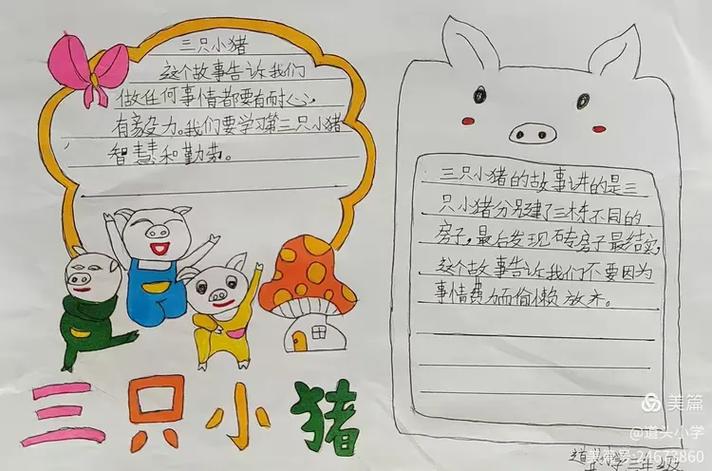 三只小猪
这个故事告诉我们
做任何事情都要有耐心,
有毅力。我们要学习第三只小猪
智慧和勤劳。
三只小猪
三只小猪的故事讲的是三
只小猪分别建了三栋不同的
房子,最后发现砖房子最结实,
这个故事告诉我们不要因为
事情费力而偷懒放弃。
美篇
@道头小学
美篇号:24673860